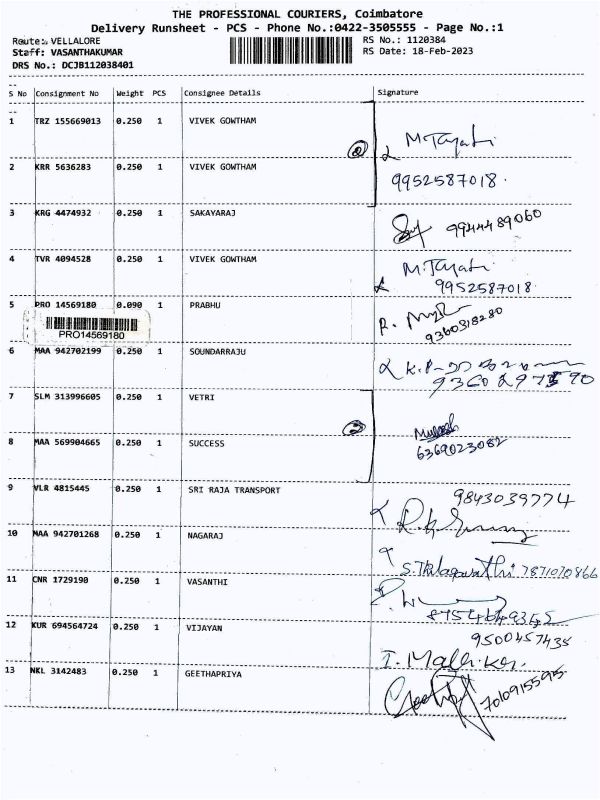 THE PROFESSIONAL COURIERS, Coimbatore
Delivery Runsheet - PCS - Phone No.:0422-3505555 - Page No.:1
Route: VELLALORE
Staff: VASANTHAKUMAR
DRS No.: DCJB112038401
RS No.: 1120384
RS Date: 18-Feb-2023
S No Consignment No Weight PCS Consignee Details Signature
1 TRZ 155669013 0.250 1 VIVEK GOWTHAM
2 M.Tayati
2 KRR 5636283 0.250 1 VIVEK GOWTHAM
9952587018.
3 KRG 4474932 0.250 1 SAKAYARAJ
9944489060
4 TVR 4094528 0.250 1 VIVEK GOWTHAM
M.Tayati
9952587018
5 PRO 14569180 0.090 1 PRABHU
9360318280
PRO14569180
6 MAA 942702199 0.250 1 SOUNDARRAJU
7 SLM 313996605 0.250 1 VETRI
2
8 MAA 569904665 0.250 1 SUCCESS
6369023082
9 VLR 4815445 0.250 1 SRI RAJA TRANSPORT
9843039774
10 MAA 942701268 0.250 1 NAGARAJ
7871070866
11 CNR 1729190 0.250 1 VASANTHI
12 KUR 694564724 0.250 1 VIJAYAN
9500457435
13 NKL 3142483 0.250 1 GEETHAPRIYA
7010915595